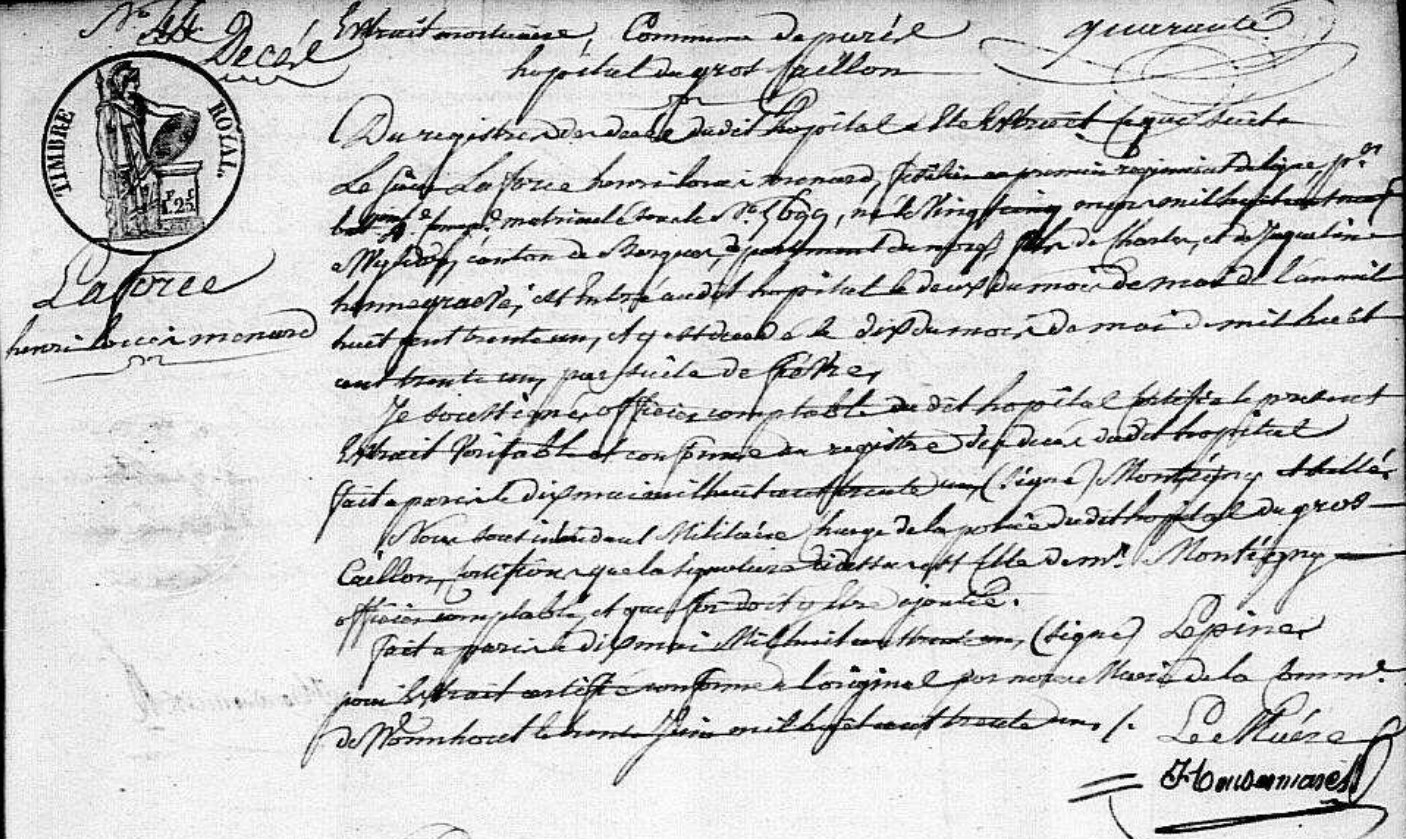 N° 44
Décès
TIMBRE ROYAL.
F C
1.25
Laforce
henri louis menard
Extrait mortuaire, Commune de paris quarante
hopital du gros Caillou
Du registre des deces dudit hopital a Ete Extrait ce qui Suit
Le sieur Laforce henri louis menard, fusilier au premier regiment de ligne, p.er
bat. comp.e matriculé sous le N° 5699, né le Vingt cinq mil huit cent neuf
a canton de Bergues, département du nord, fils de Charles, et de Jaqueline
hennegraeve, est Entré audit hopital le deux du mois de mai de l'an mil
huit cent trente un, et y est decedé le dix du mois de mai de mil huit
cent trente un, par suite de fiévre,
Je soussigné, officier comptable du dit hopital certifie le present
Extrait Veritable et conforme au registre des deces dudit hopital
fait a paris le dix mai mil huit cent trente un, (signé) Montigny
Nous sous intendant Militaire chargé de la police dudit hopital du gros
Caillou, certifions que la signature ci dessus est Celle de mr. Montigny
officier comptable, et que foi doit y Etre ajoutée.
fait a paris le dix mai Mil huit cent trente un, (signé) Lepine
pour Extrait certifié conforme a l'original par nous Maire de la Comm.e
de Wormhout le trente Juin mil huit cent trente un, /. Le Maire